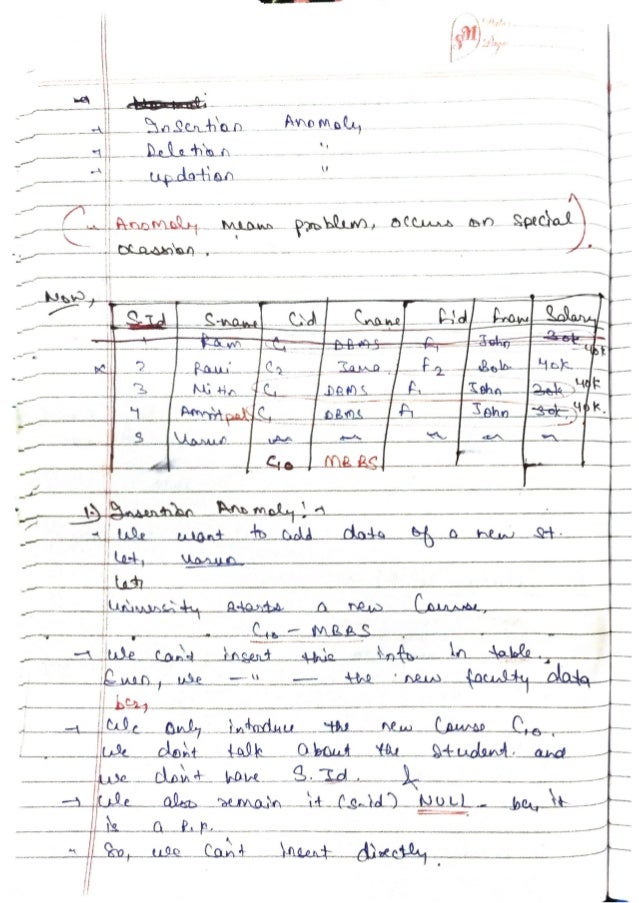 Insertion Anomaly
Deletion "
updation "
(" Anomaly means problem, occurs on special
ocassion.)
Now,
S.Id S-name Cid Cname Fid Fname Salary
1 Ram C1 DBMS F1 John 30k 40k
2 Ravi C2 Java F2 Bob 40k
3 Nitin C1 DBMS F1 John 30k 40k
4 Amritpal C1 DBMS F1 John 30k 40k.
5 Varun ~ ~ ~ ~ ~
C10 MBBS
1.) Insertion Anomaly:→
- We want to add data of a new st.
let, Varun
let,
University starts a new Course,
C10 - MBBS
→ We can't insert this info in table.
Even, we — " — the new faculty data
bcz,
→ We only introduce the new Course C10.
We don't talk about the student. and
we don't have S.Id. &
→ We also remain it (s.id) NULL - bcz it
is a P.K.
- So, we can't insert directly.